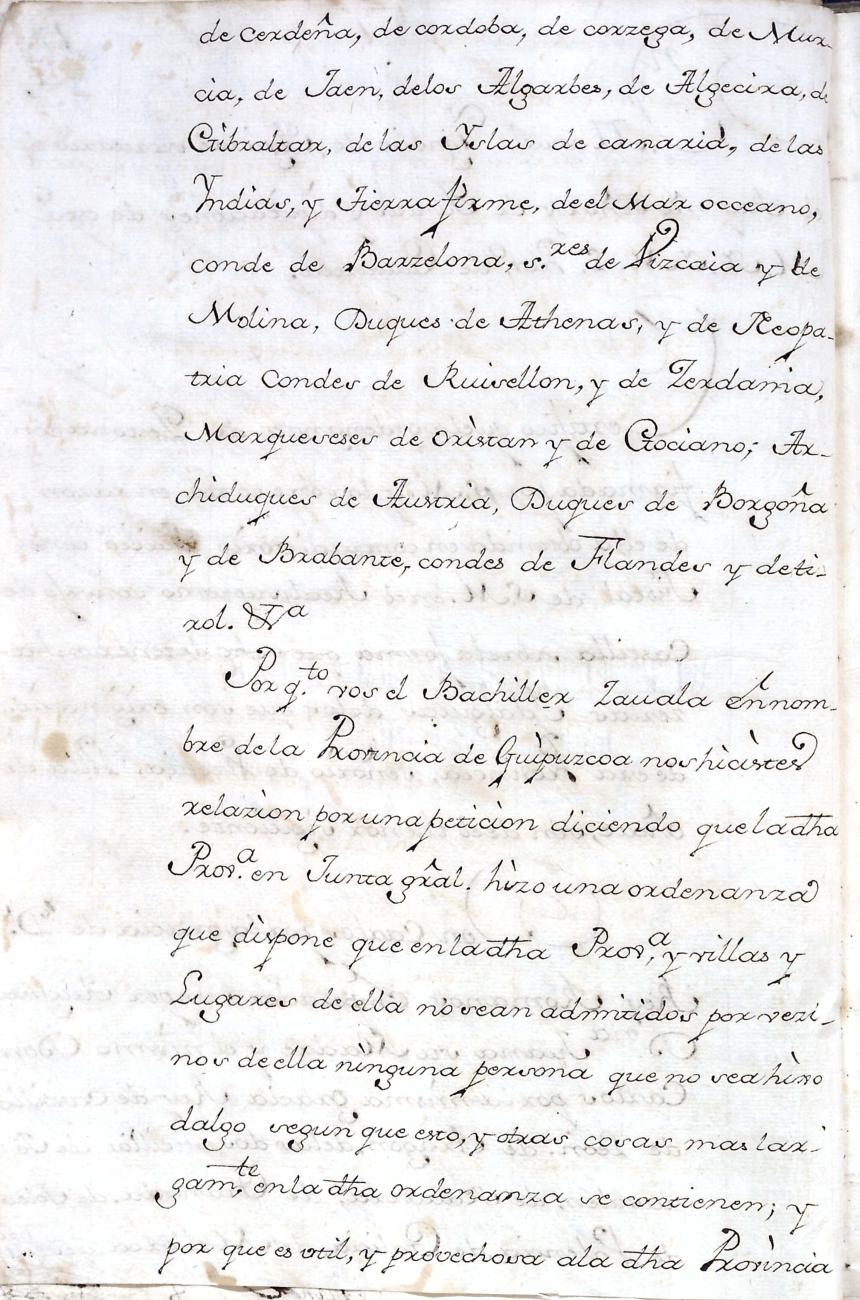 de Cerdeña, de cordoba, de corzega, de Mur-
cia, de Jaen, delos Algarbes, de Algecira, de
Gibraltar, de las Yslas de canaria, de las
Yndias, y Tierra firme, de el Mar occeano,
conde de Barzelona, s.res de Vizcaia y de
Molina, Duques de Athenas, y de Neopa-
tria Condes de Ruisellon, y de Zerdania,
Marqueseses de oristan y de Gociano; Ar-
chiduques de Austria, Duques de Borgoña
y de Brabante, condes de Flandes y de ti-
rol. &a
Por q.to vos el Bachiller Zauala en nom-
bre de la Provincia de Guipuzcoa nos hicistes
relazion por una peticion diciendo que la dha
Prov.a en Junta gral. hizo una ordenanza
que dispone que en la dha Prov.a, y villas y
Lugares de ella no sean admitidos por vezi-
nos de ella ninguna persona que no sea hixo
dalgo segun que esto, y otras cosas mas lar-
gam.te en la dha ordenanza se contienen; y
por que es util, y provechosa ala dha Provincia